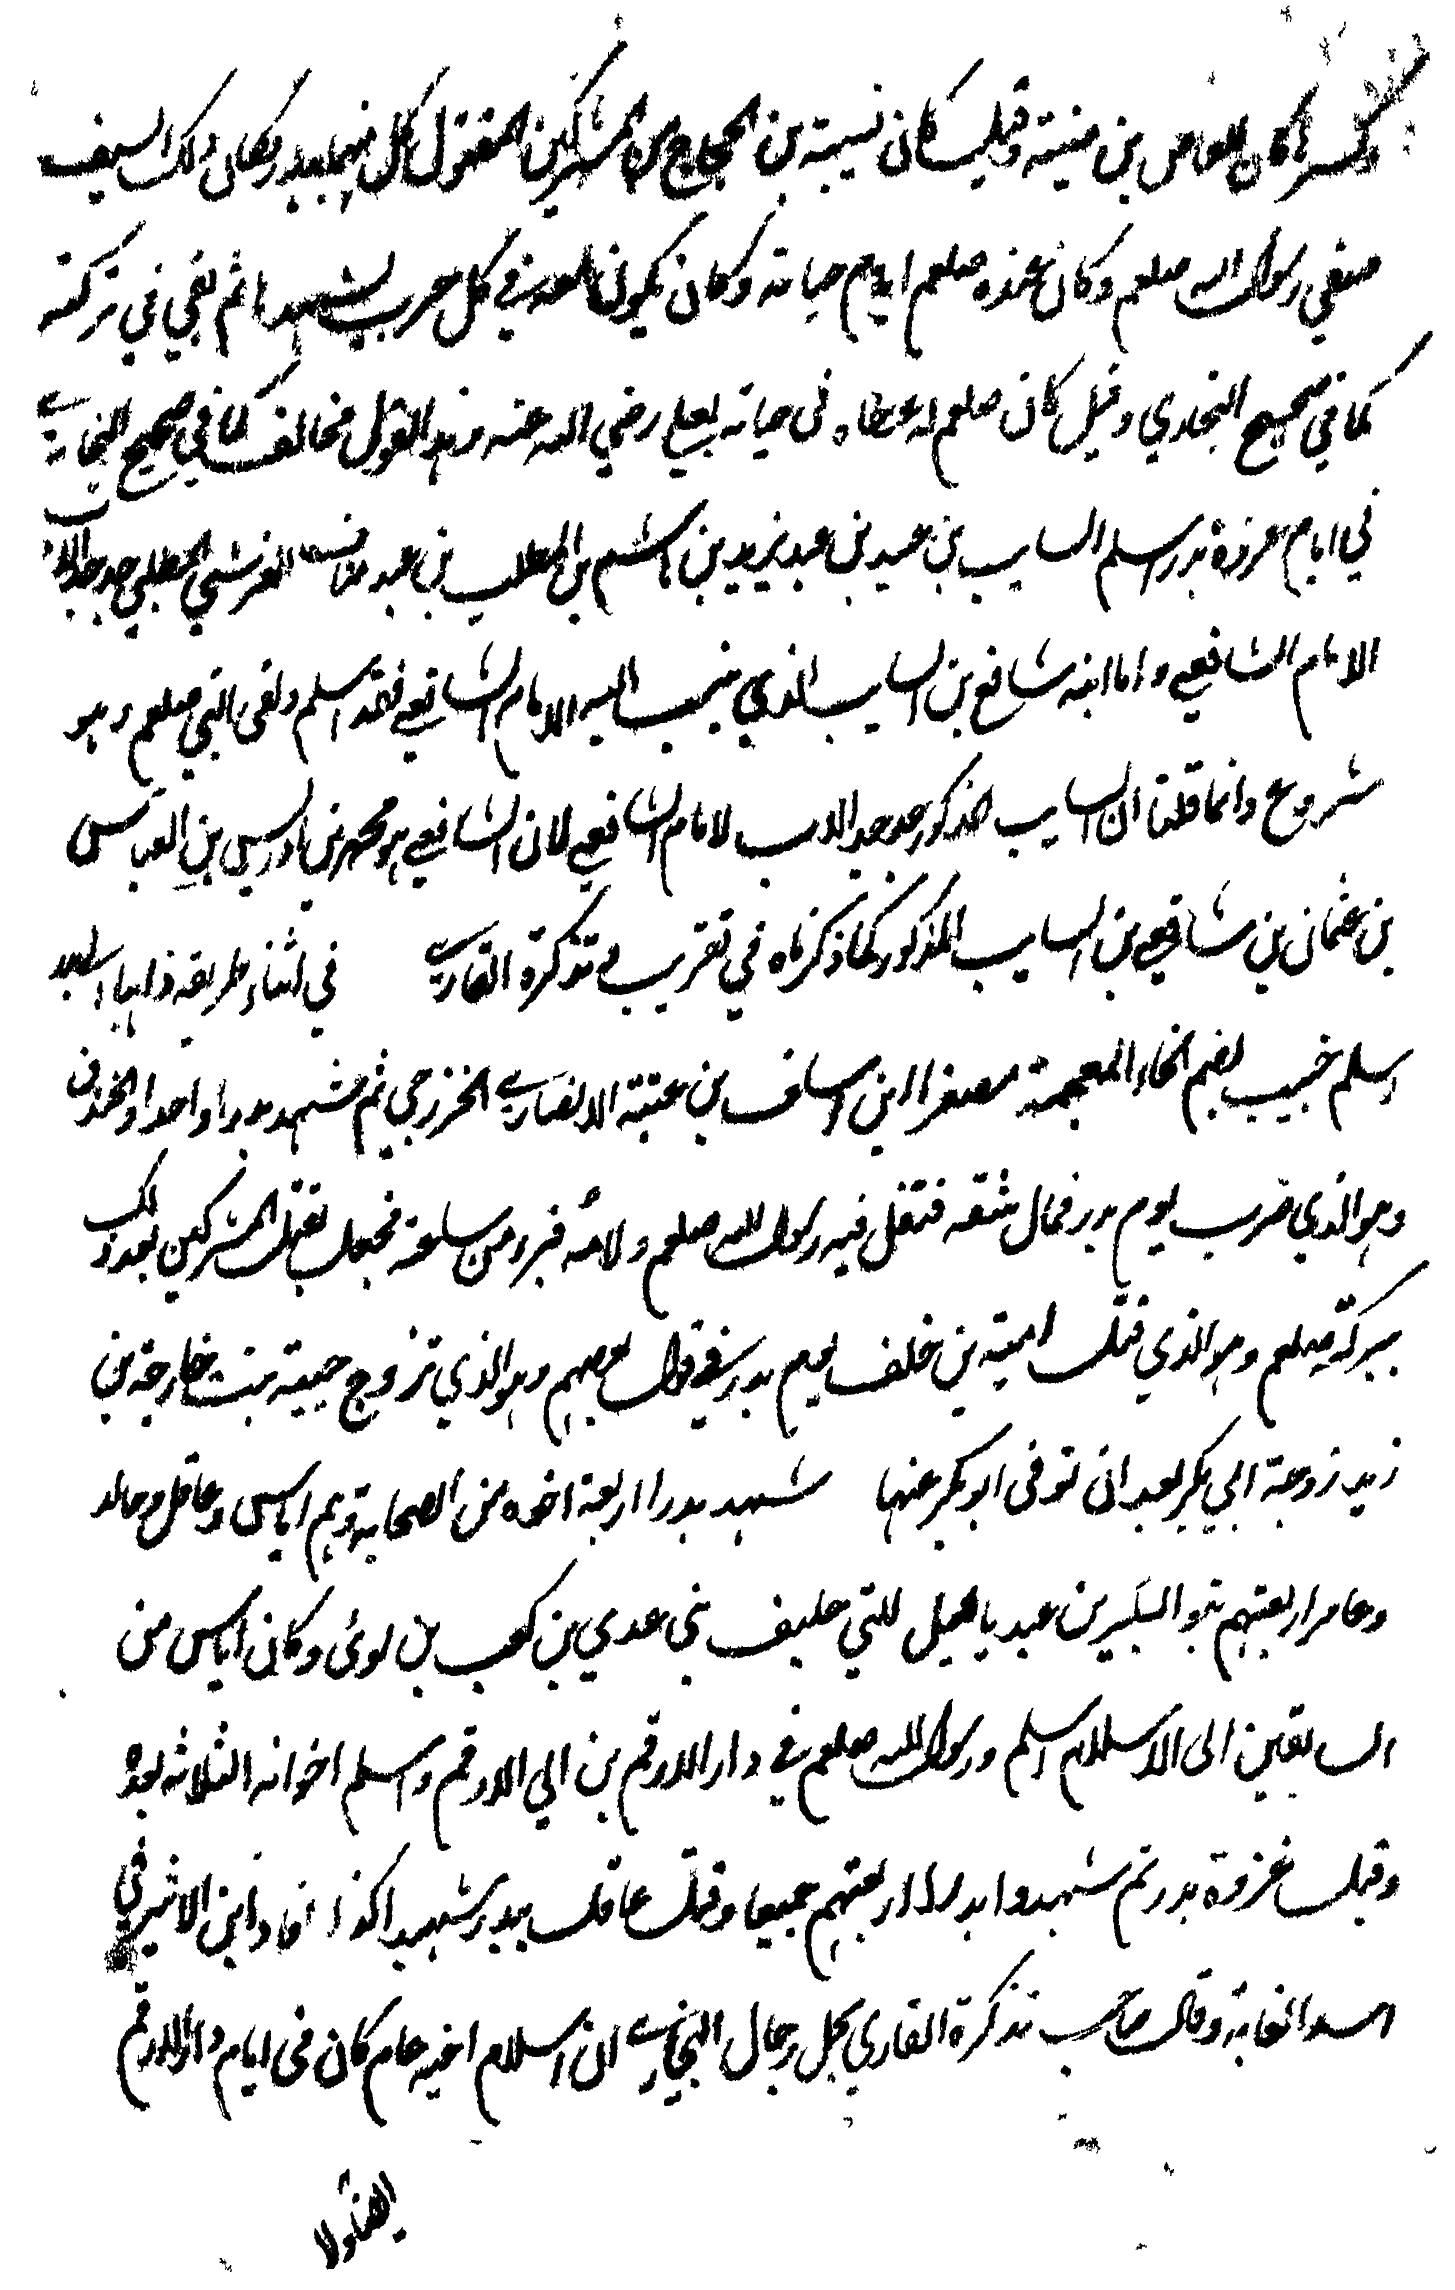 وكسر كان للعاص بن منبه وقيل كان نبيه بن الحجاج من المشركين المقتول كل منهما ببدر وكان ذلك السيف
صفي رسول الله صلعم وكان عنده صلعم ايام حياته وكان يكون معه في كل حرب يشهدها ثم بقي في تركته
كما في صحيح البخاري وقيل كان صلعم اعطاه في حياته لعلي رضي الله عنه وهذا القول مخالف لما في صحيح البخاري
في ايام غزوة بدر اسلم السايب بن عبيد بن عبد يزيد بن هاشم بن المطلب بن عبد مناف القرشي المطلبي جد جد الاب
الامام الشافعي واما ابنه شافع بن السايب الذي ينسب اليه الامام الشافعي فقد اسلم ولقى النبي صلعم وهو
شروع وانما قلنا ان السايب المذكور جد جد الاب لامام الشافعي لان الشافعي هو محمد بن ادريس بن العباس
بن عثمان بن شافع بن السايب المذكور كما ذكرناه في تقريب تذكرة القاري في اثناء طريقه ذاهبا الى بدر
اسلم خبيب بضم الخاء المعجمة مصغرا ابن اساف بن عتبة الانصاري الخزرجي ثم شهد بدرا واحدا والخندق
وهو الذي ضرب يوم بدر فمال شقه فتفل فيه رسول الله صلعم ولامه فبرء من ساعته فجعل يقتل المشركين بعد ذلك
ببركته صلعم وهو الذي قتل امية بن خلف يوم بدر في قول بعضهم وهو الذي تزوج حبيبة بنت خارجة بن
زيد زوجة ابي بكر بعد ان توفى ابو بكر عنها شهد بدرا اربعة اخوه من الصحابة وهم اياس وعاقل وخالد
وعامر اربعتهم بنو البكير بن عبد ياليل الليثي حليف بني عدي بن كعب بن لوئ وكان اياس من
السابقين الى الاسلام اسلم ورسول الله صلعم في دار الارقم بن ابي الارقم واسلم اخوانه الثلاثه بعده
وقبل غزوة بدر ثم شهدوا بدرا اربعتهم جميعا وقتل عاقل ببدر شهيدا كذا افاد ابن الاثير في
اسد الغابة وقال صاحب تذكرة القاري بحل رجال البخاري ان اسلام اخيه عامر كان في ايام دار الارقم